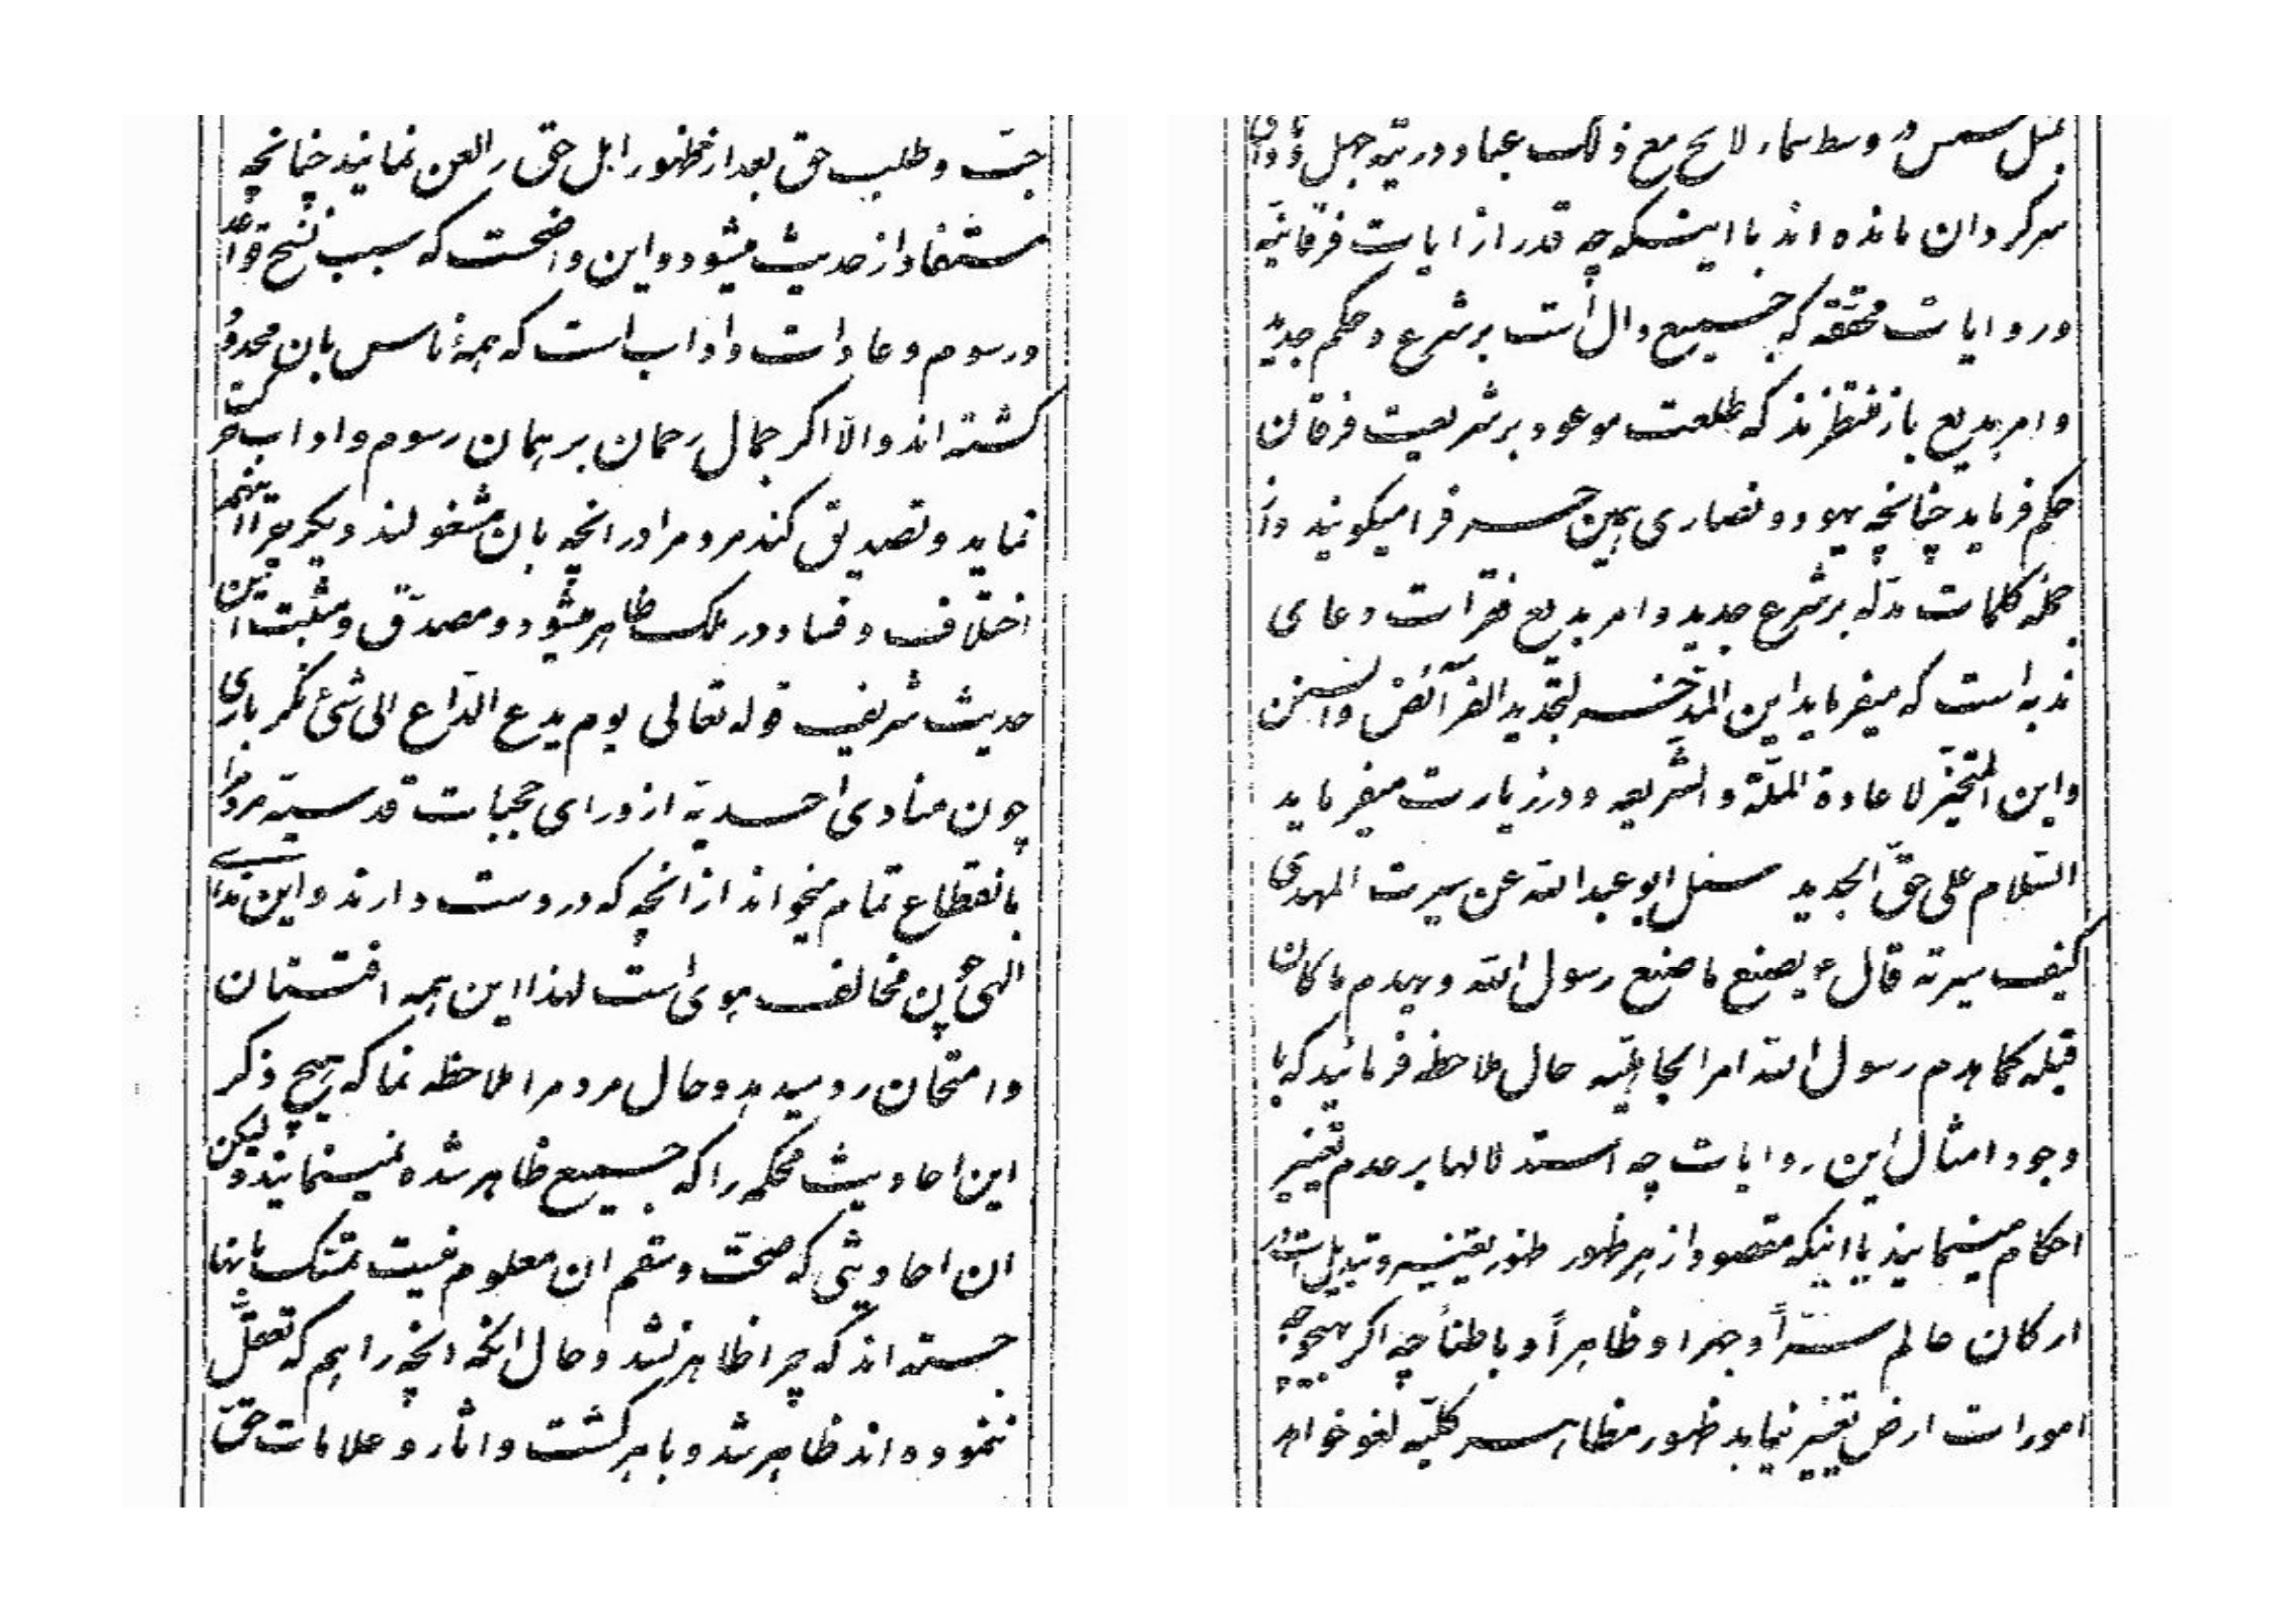 بمثل شمس در وسط سماء لایح مع ذلک عباد در تیه جهل و وادی
سرکردان مانده اند با اینکه چه قدر از ایات فرقانیّه
و روایات محققه که جمیع دال است بر شرع و حکم جدید
و امر بدیع باز منتظرند که طلعت موعود بر شریعت فرقان
حکم فرماید چنانچه یهود و نصاری همین حرف را میکویند و از
جمله کلمات مدلّه بر شرع جدید و امر بدیع فقرات دعای
ندبه است که میفرماید این المدّخر لتجدید الفرآئض و السنن
و این المتخیّر لاعادة الملّة و الشّریعه و در زیارت میفرماید
السّلام علی حقّ الجدید سئل ابو عبد الله عن سیرت المهدی
کیف سیرته قال ع یصنع ما صنع رسول الله و یهدم ما کان
قبله کما هدم رسول الله امر الجاهلیّه حال ملاحظه فرمائید که با
وجود امثال این روایات چه استدلالها بر عدم تغییر
احکام مینمایند با اینکه مقصود از هر ظهور ظهور تغییر و تبدیل است در
ارکان عالم سرّاً و جهرا و ظاهراً و باطناً چه اکر بهیچوجه
امورات ارض تغییر نیابد ظهور مظاهر کلّیه لغو خواهد
جبّ و طلب حق بعد از ظهور اهل حق را لعن نمایند چنانچه
مستفاد از حدیث میشود و این واضحست که سبب نسخ قواعد
و رسوم و عادات و اداب است که همهٔ ناس بان محدود
کشته اند و الّا اکر جمال رحمان بر همان رسوم و اداب حرکت
نماید و تصدیق کند مردم را در انچه بان مشغولند دیکر چرا اینهمه
اختلاف و فساد در ملک ظاهر میشود و مصدّق و مثبت این
حدیث شریف قوله تعالی یوم یدع الدّاع الی شئ نکر باری
چون منادی احدیّه از ورای حجبات قدسیّه مردم را
بانقطاع تمام میخواند از انچه که در دست دارند و این ندای
الهی چون مخالف هوی است لهذا این همه افتتان
و امتحان رو میدهد و حال مردم را ملاحظه نما که هیچ ذکر
این احادیث محکمه را که جمیع ظاهر شده نمینمایند و لیکن
ان احادیثی که صحّت و سقم ان معلوم نیست تمسّک بانها
جسته اند که چرا ظاهر نشد و حال انکه انچه را هم که تعقّل
ننموده اند ظاهر شد و باهر کشت و اثار و علامات حقّ